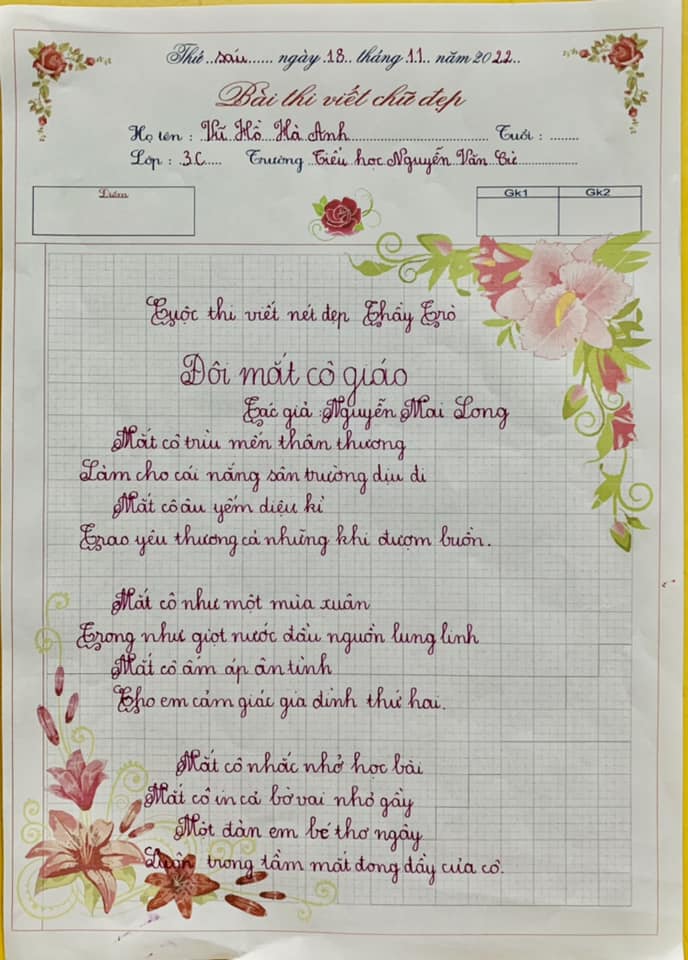 Thứ ..sáu...... ngày .18.. tháng .11.. năm 2022..
Bài thi viết chữ đẹp
Họ tên : Vũ Hồ Hà Anh Tuổi : ........
Lớp : .3C..... Trường Tiểu học Nguyễn Văn Cừ
Điểm Gk1 Gk2
Cuộc thi viết nét đẹp Thầy Trò
Đôi mắt cô giáo
Tác giả : Nguyễn Mai Long
Mắt cô trìu mến thân thương
Làm cho cái nắng sân trường dịu đi
Mắt cô âu yếm diệu kì
Trao yêu thương cả những khi đượm buồn.
Mắt cô như một mùa xuân
Trong như giọt nước đầu nguồn lung linh
Mắt cô ấm áp ân tình
Cho em cảm giác gia đình thứ hai.
Mắt cô nhắc nhở học bài
Mắt cô in cả bờ vai nhỏ gầy
Một đàn em bé thơ ngây
Luôn trong tầm mắt đong đầy của cô.